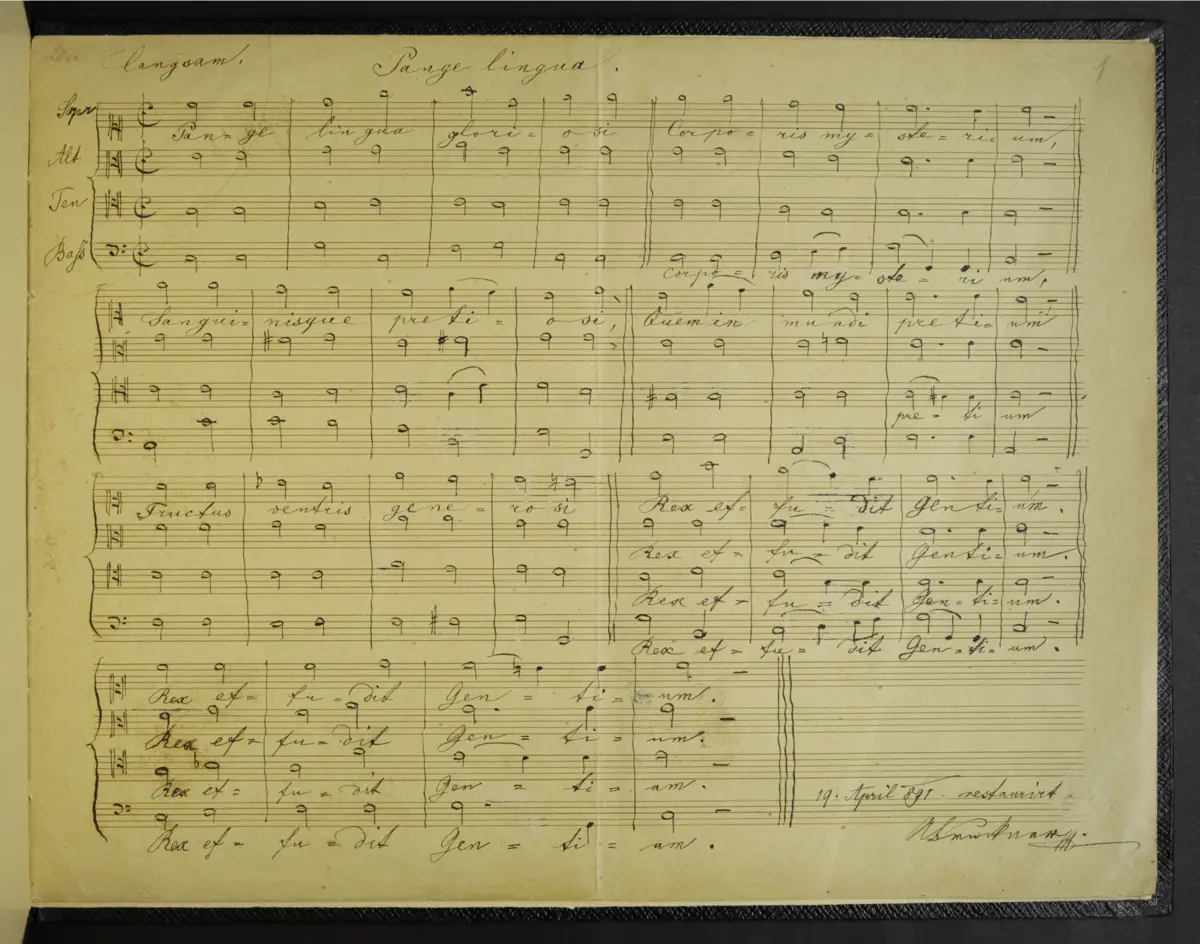 Langsam. Pange lingua. 1
Sopr
Pan=ge lingua glori=osi Corpo=ris my=ste=ri=um,
Alt
Ten
Baß
Corpo=ris my=ste=ri um,
Sangui=nisque preti=osi, Quem in mundi preti=um
pre=ti um
Fructus ventris gene=rosi Rex ef=fu=dit Genti=um.
Rex ef=fu=dit Genti=um.
Rex ef=fu=dit Gen=ti=um.
Rex ef=fu=dit Gen=ti=um.
Rex ef=fu=dit Gen=ti=um.
Rex ef=fu=dit Gen=ti=um.
Rex ef=fu=dit Gen=ti=um.
19. April 891 restaurirt
Rex ef=fu=dit Gen=ti=um.
ABruckner